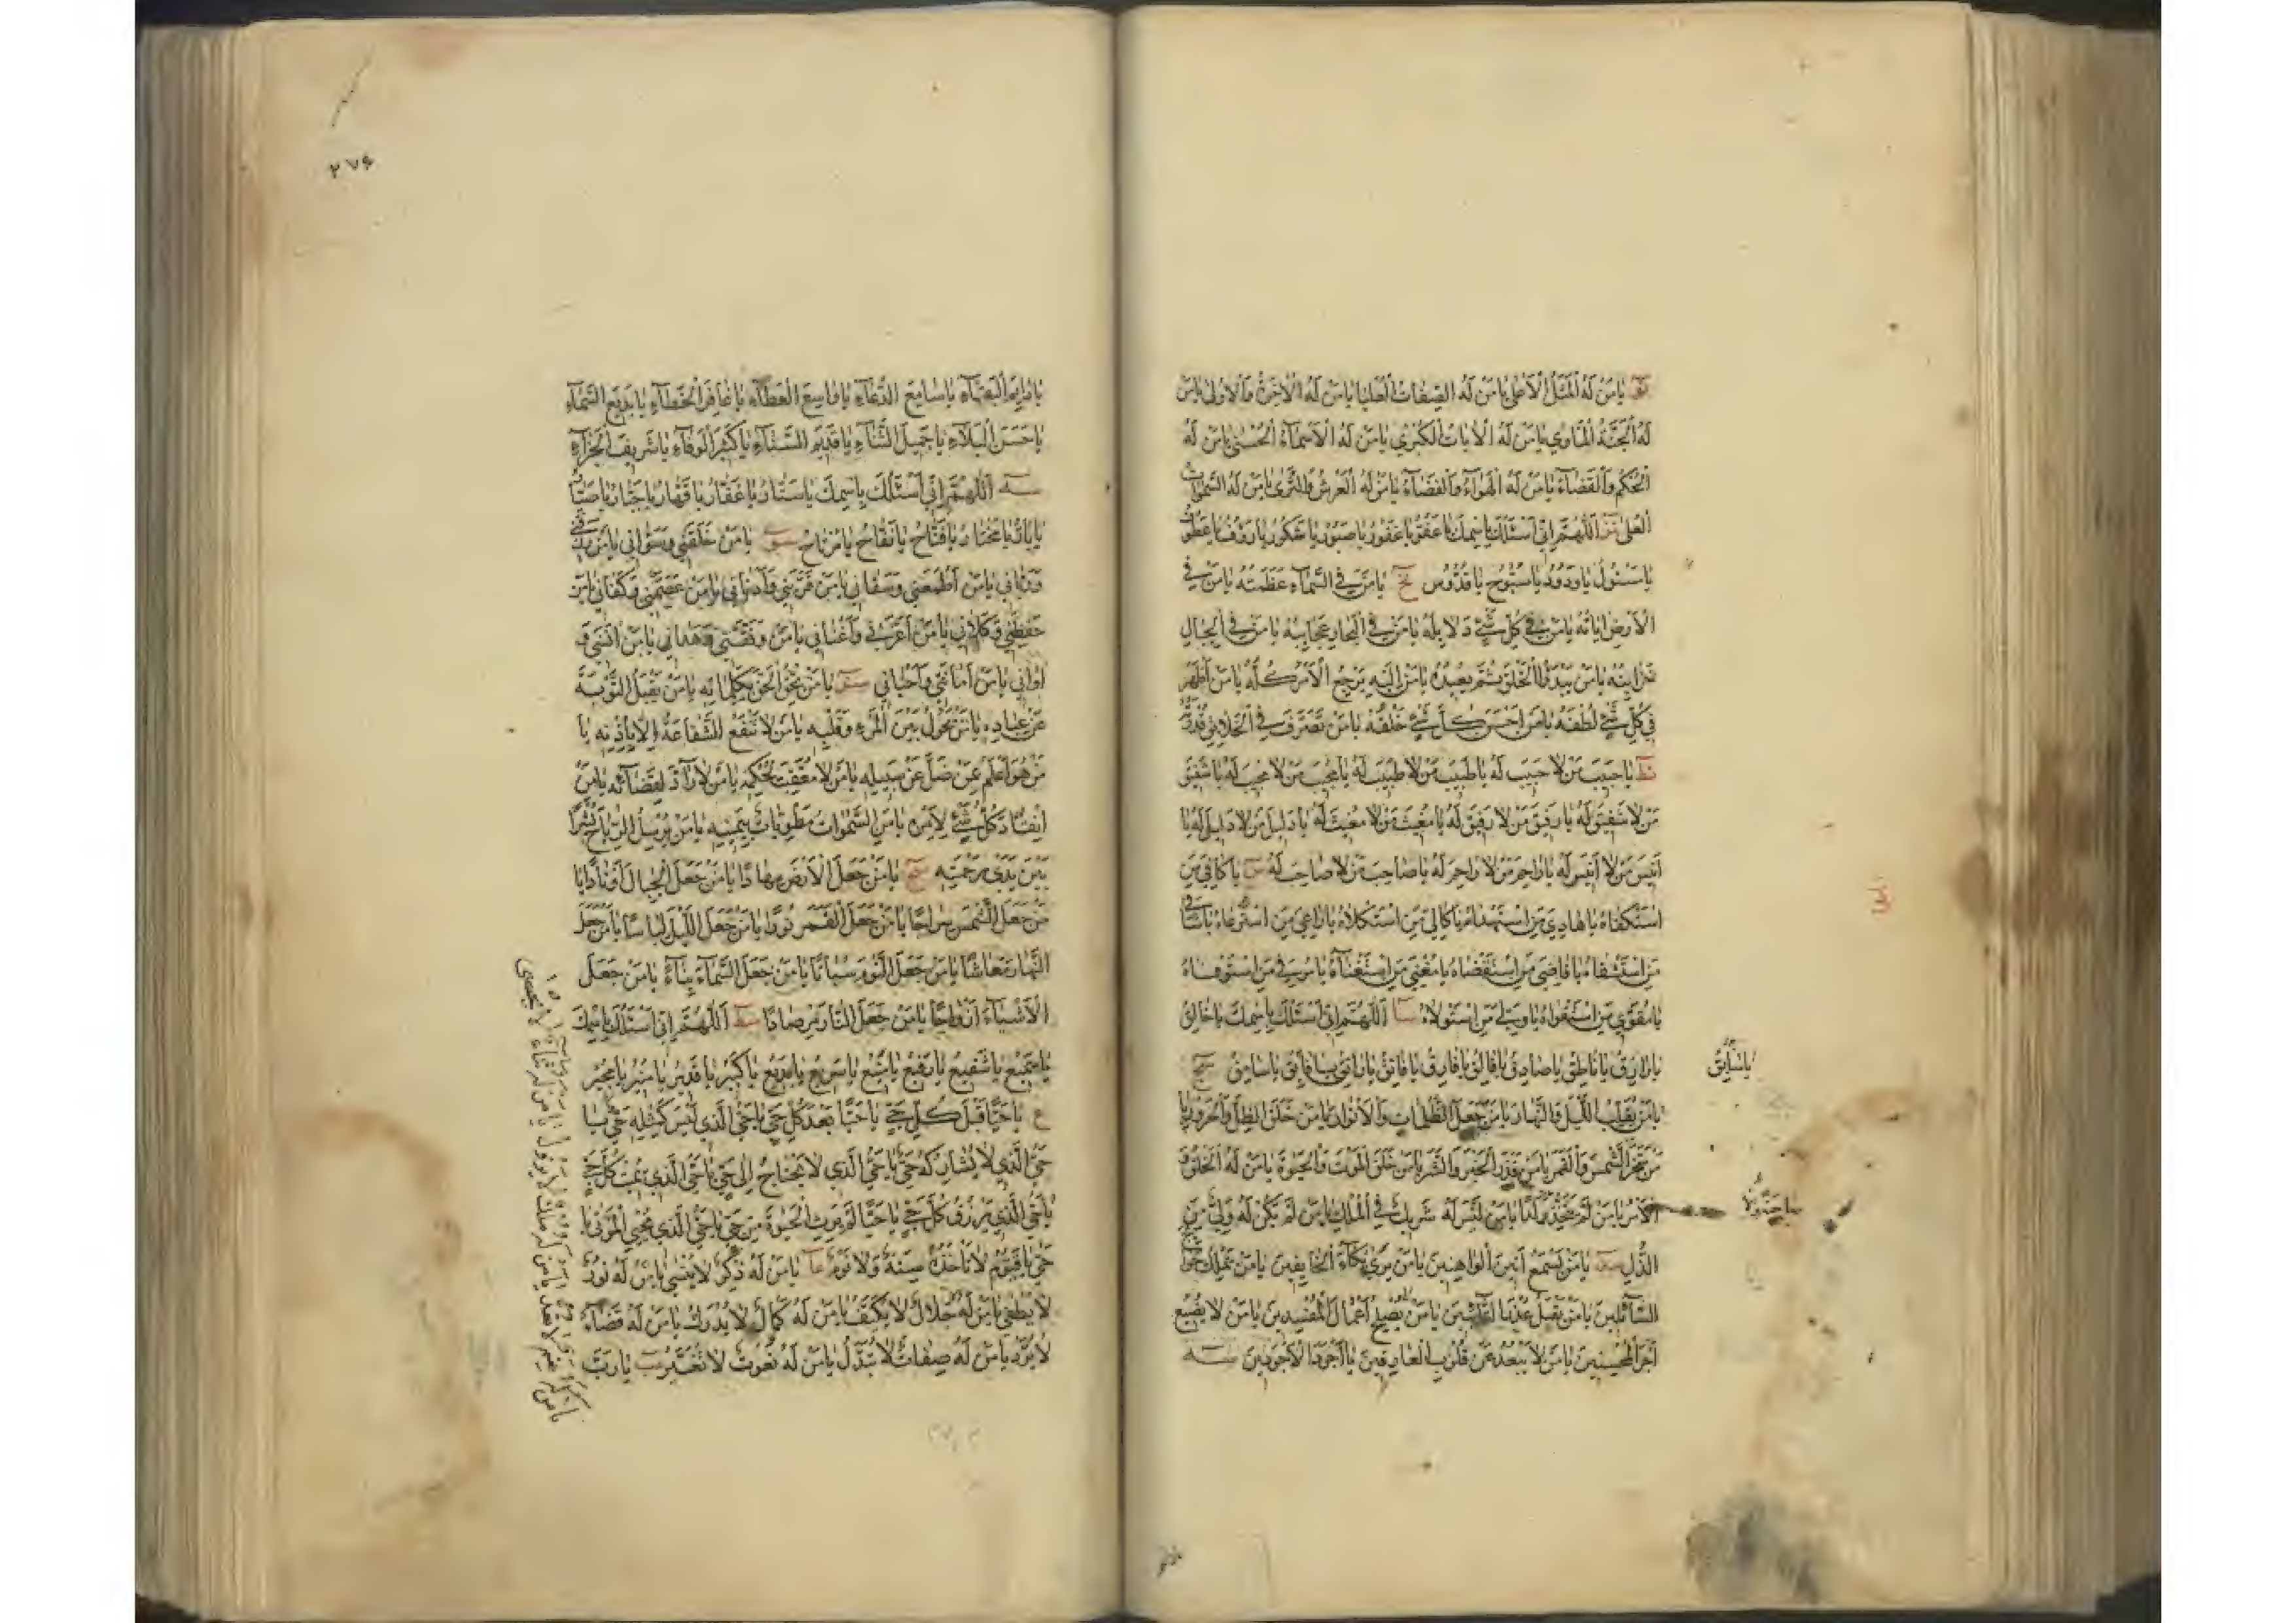 نو يا من له المثل الاعلى يا من له الصفات العليا يا من له الاخرة والاولى يا من
له الجنة الماوي يا من له الايات الكبري يا من له الاسماء الحسنى يا من له
الحكم والقضاء يا من له الهواء والفضاء يا من له العرش والثرى يا من له السموات
العلى نز اللهم اني اسئلك باسمك يا عفو يا غفور يا صبور يا شكور يا رؤف يا عطوف
يا مسئول يا ودود يا سبوح يا قدوس نح يا من في السماء عظمته يا من في
الارض اياته يا من في كل شئ دلايله يا من في البحار عجايبه يا من في الجبال
خزاينه يا من يبدؤا الخلق ثم يعيده يا من اليه يرجع الامر كله يا من اظهر
في كل شئ لطفه يا من احسن كل شئ خلقه يا من تصرف في الخلايق قدرته
نط يا حبيب من لا حبيب له يا طبيب من لا طبيب له يا مجيب من لا مجيب له يا شفيق
من لا شفيق له يا رفيق من لا رفيق له يا مغيث من لا مغيث له يا دليل من لا دليل له يا
انيس من لا انيس له يا راحم من لا راحم له يا صاحب من لا صاحب له س يا كافي من
استكفاه يا هادي من استهداه يا كالي من استكلاه يا راعي من استرعاه يا شافي
من استشفاه يا قاضي من استقضاه يا مغني من استغناه يا موفي من استوفاه
يا مقوي من استقواه يا ولي من استولاه سا اللهم اني اسئلك باسمك يا خالق
يا رازق يا ناطق يا صادق يا فالق يا فارق يا فاتق يا راتق يا فائق يا سامق
يا سابق
يا من يقلب الليل والنهار يا من جعل الظلمات والانوار يا من خلق الظل والحرور يا
من سخر الشمس والقمر يا من قدر الخير والشر يا من خلق الموت والحيوة يا من له الخلق و
الامر يا من لم يتخذ ولدا يا من ليس له شريك في الملك يا من لم يكن له ولي من
الذل يا من يسمع انين الواهنين يا من يرى بكاء الخايفين يا من يملك حوائج
السائلين يا من يقبل عذر التائبين يا من لا يصلح اعمال المفسدين يا من لا يضيع
اجر المحسنين يا من لا يبعد عن قلوب العارفين يا اجود الاجودين سه
٢٧۶
يا دايم البقاء يا سامع الدعاء يا واسع العطاء يا غافر الخطاء يا بديع السماء
يا حسن البلاء يا جميل الثناء يا قديم السناء يا كثير الوفاء يا شريف الجزاء
سه اللهم اني اسئلك باسمك يا ستار يا غفار يا قهار يا جبار يا صبار
يا بار يا مختار يا فتاح يا نفاح يا مرتاح سو يا من خلقني وسواني يا من رزقني
ورباني يا من اطعمني وسقاني يا من قربني وادناني يا من عصمني وكفاني يا من
حفظني وكلاني يا من اعزني واغناني يا من وفقني وهداني يا من انسني و
اواني يا من اماتني واحياني سز يا من يحق الحق بكلماته يا من يقبل التوبة
عن عباده يا من يحول بين المرء وقلبه يا من لا تنفع الشفاعة الا باذنه يا
من هو اعلم بمن ضل عن سبيله يا من لا معقب لحكمه يا من لا راد لقضائه يا من
انقاد كل شئ لامره يا من السموات مطويات بيمينه يا من يرسل الرياح بشرا
بين يدي رحمته سح يا من جعل الارض مهادا يا من جعل الجبال اوتادا يا
من جعل الشمس سراجا يا من جعل القمر نورا يا من جعل الليل لباسا يا من جعل
النهار معاشا يا من جعل النوم سباتا يا من جعل السماء بناء يا من جعل
الاشياء ازواجا يا من جعل النار مرصادا سط اللهم اني اسئلك باسمك
يا سميع يا شفيع يا رفيع يا منيع يا سريع يا بديع يا كبير يا قدير يا منير يا مجير
ع يا حيا قبل كل حي يا حيا بعد كل حي يا حي الذي ليس كمثله حي يا
حي الذي لا يشاركه حي يا حي الذي لا يحتاج الى حي يا حي الذي يميت كل حي
يا حي الذي يرزق كل حي يا حيا لم يرث الحيوة من حي يا حي الذي يحيي الموتى يا
حي يا قيوم لا تاخذه سنة ولا نوم عا يا من له ذكر لا ينسى يا من له نور
لا يطفى يا من له جلال لا يكيف يا من له كمال لا يدرك يا من له قضاء
لا يرد يا من له صفات لا تبدل يا من له نعوت لا تغير عب يا رب